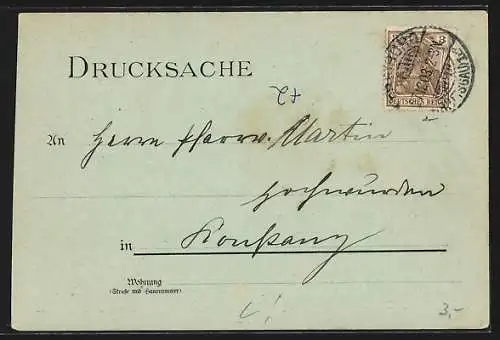 DRUCKSACHE
3
DEUTSCHES REICH
An Herrn Pfarrv. Martin
Hochwürden
in Konstanz
Wohnung
(Straße und Hausnummer)
3,-